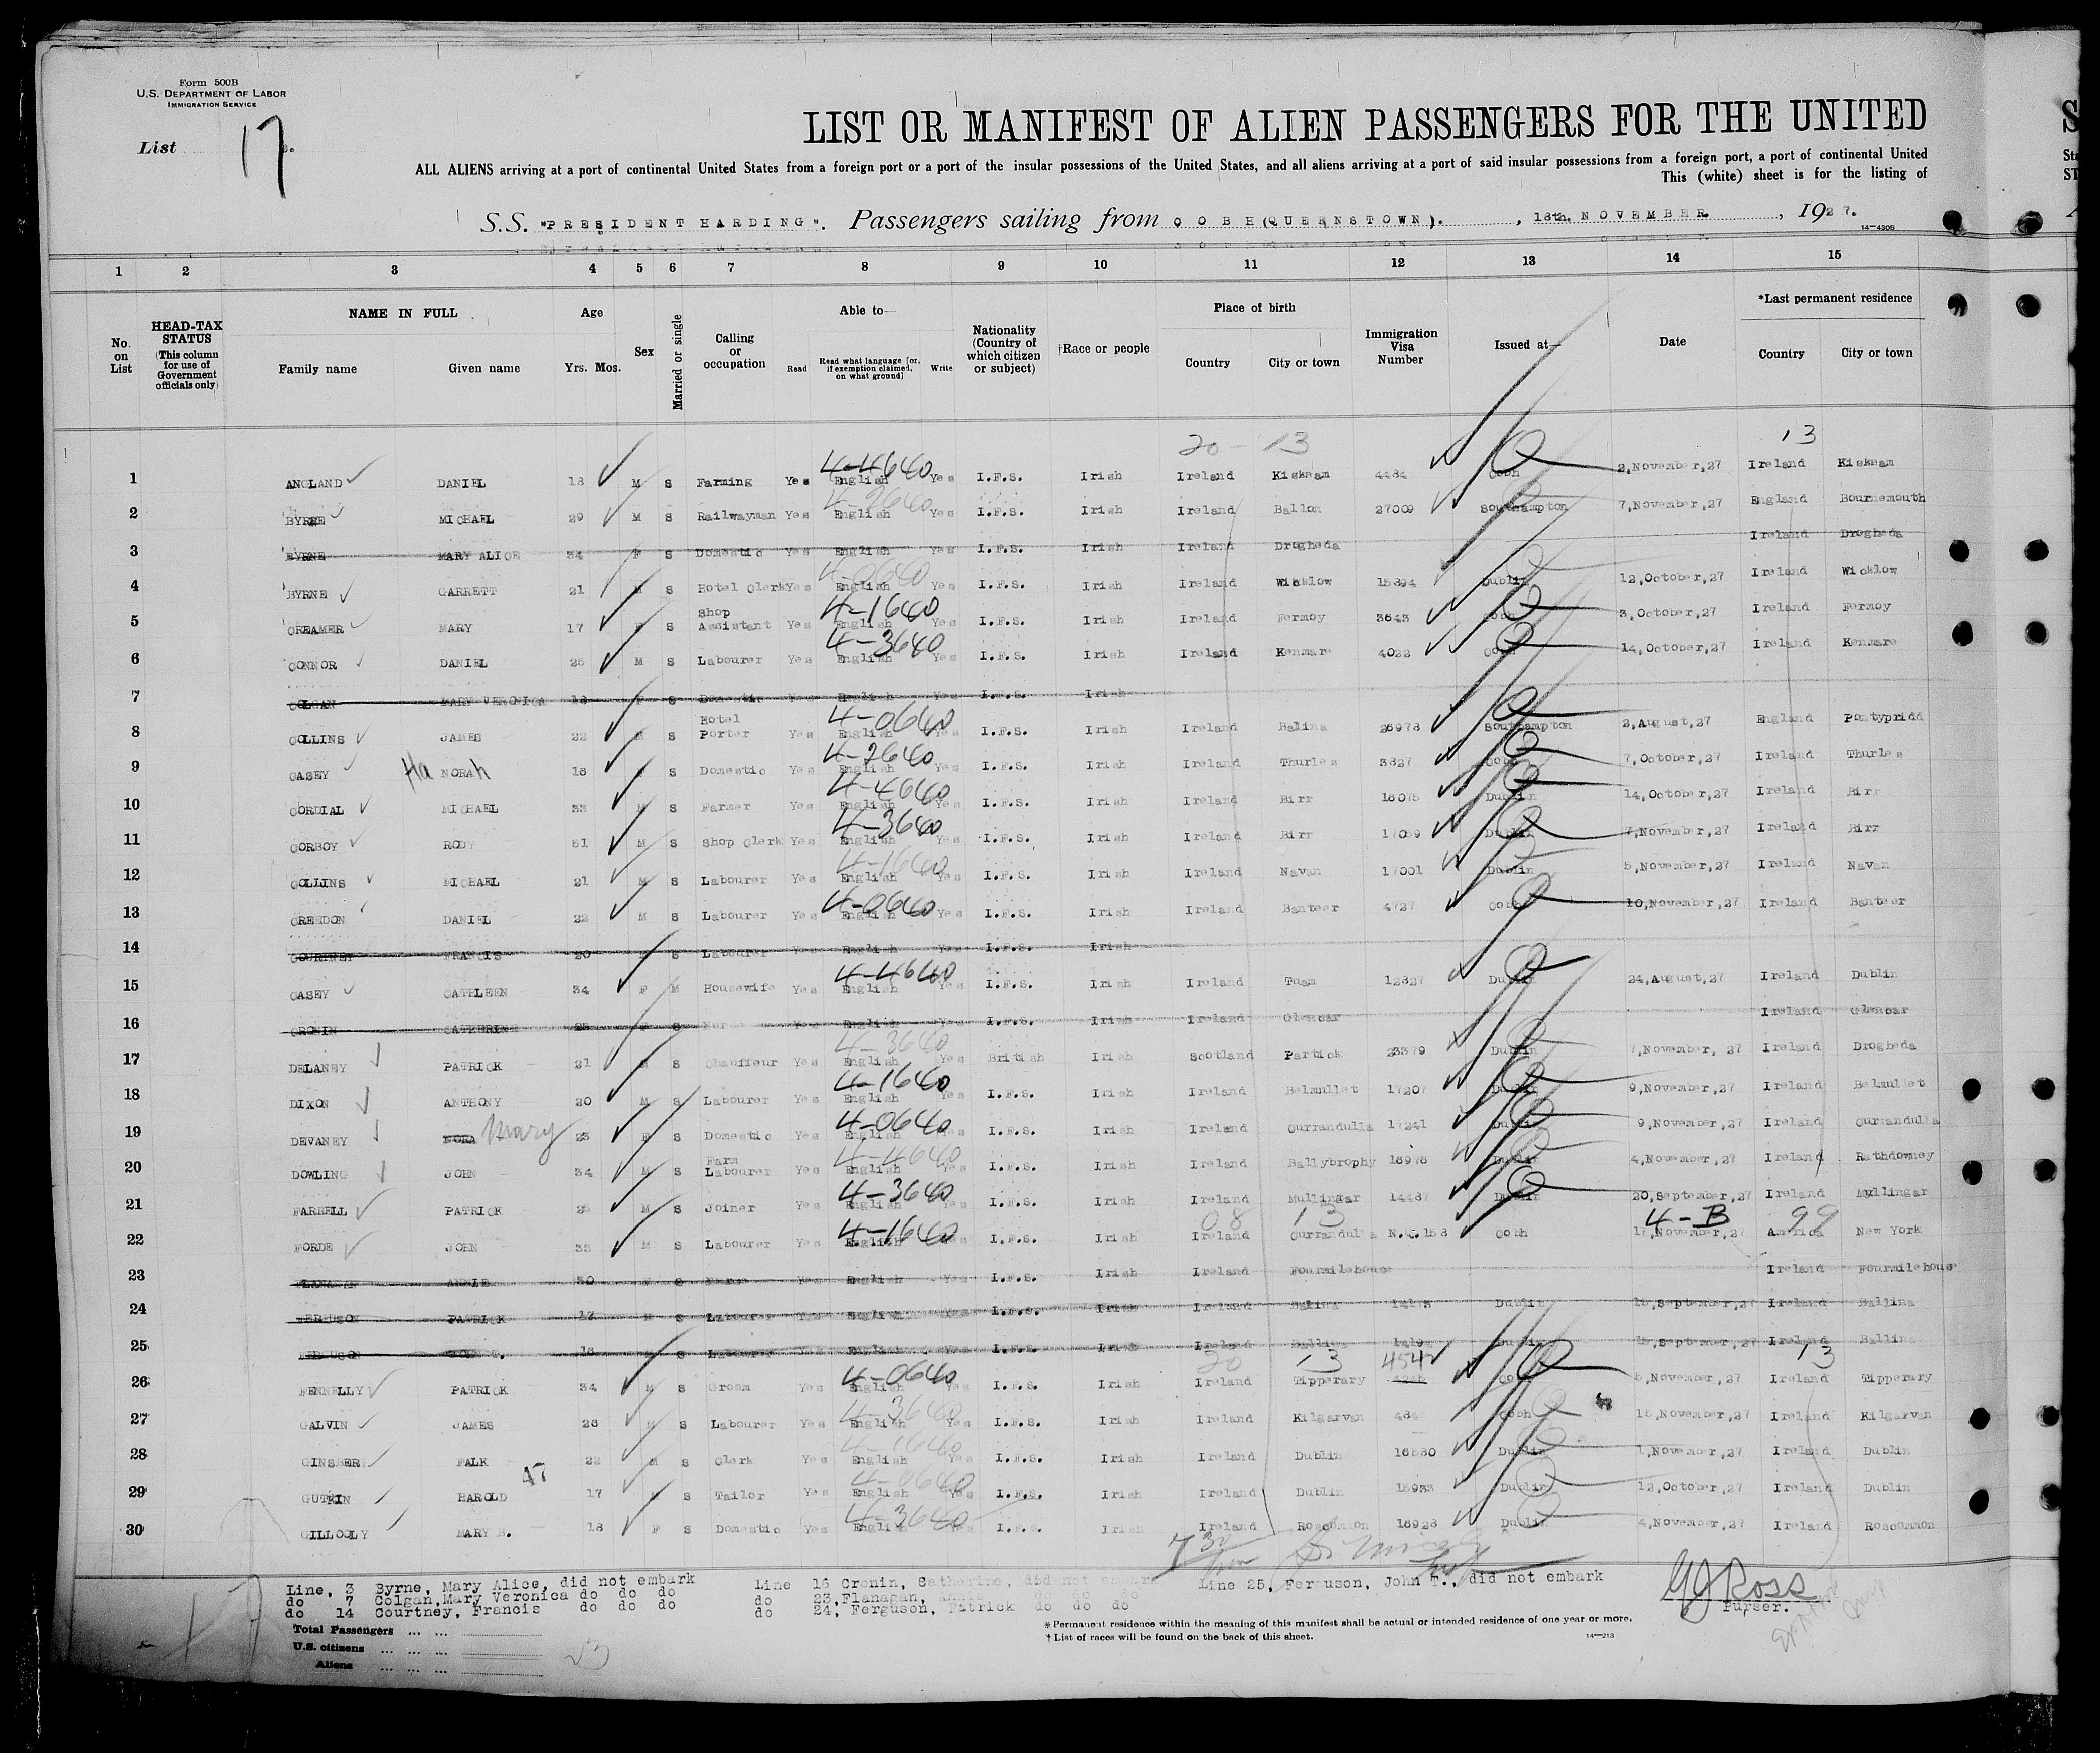 Form 500B
U.S. DEPARTMENT OF LABOR
IMMIGRATION SERVICE
List 17
LIST OR MANIFEST OF ALIEN PASSENGERS FOR THE UNITED
ALL ALIENS arriving at a port of continental United States from a foreign port or a port of the insular possessions of the United States, and all aliens arriving at a port of said insular possessions from a foreign port, a port of continental United
This (white) sheet is for the listing of
S.S. "PRESIDENT HARDING". Passengers sailing from COBH(QUEENSTOWN). , 18th. NOVEMBER , 1927.
14—430B
1 2 3 4 5 6 7 8 9 10 11 12 13 14 15
No. on List
HEAD-TAX STATUS (This column for use of Government officials only)
NAME IN FULL Family name Given name
Age Yrs. Mos.
Sex
Married or single
Calling or occupation
Able to— Read Read what language [or, if exemption claimed, on what ground] Write
Nationality (Country of which citizen or subject)
†Race or people
Place of birth Country City or town
Immigration Visa Number
Issued at—
Date
*Last permanent residence Country City or town
20 - 13 13
1 ANGLAND DANIEL 18 M S Farming Yes English 4-4640 Yes I.F.S. Irish Ireland Kiskeam 4484 Cobh 2,November,27 Ireland Kiskeam
2 BYRNE MICHAEL 29 M S Railwayman Yes English 4-2640 Yes I.F.S. Irish Ireland Ballon 27009 Southampton 7,November,27 England Bournemouth
3 BYRNE MARY ALICE 34 F S Domestic Yes English Yes I.F.S. Irish Ireland Drogheda Ireland Drogheda
4 BYRNE GARRETT 21 M S Hotel Clerk Yes English 4-0640 Yes I.F.S. Irish Ireland Wicklow 15894 Dublin 12,October,27 Ireland Wicklow
5 CREAMER MARY 17 F S Shop Assistant Yes English 4-1640 Yes I.F.S. Irish Ireland Fermoy 3643 Cobh 3,October,27 Ireland Fermoy
6 CONNOR DANIEL 25 M S Labourer Yes English 4-3640 Yes I.F.S. Irish Ireland Kenmare 4022 Cobh 14,October,27 Ireland Kenmare
7 COLGAN MARY VERONICA 18 F S Domestic Yes English Yes I.F.S. Irish
8 COLLINS JAMES 22 M S Hotel Porter Yes English 4-0640 Yes I.F.S. Irish Ireland Balina 26978 Southampton 2,August,27 England Pontypridd
9 CASEY Ha NORAh 18 F S Domestic Yes English 4-2640 Yes I.F.S. Irish Ireland Thurles 3827 Cobh 7,October,27 Ireland Thurles
10 CORDIAL MICHAEL 33 M S Farmer Yes English 4-4640 Yes I.F.S. Irish Ireland Birr 16075 Dublin 14,October,27 Ireland Birr
11 CORBOY RODY 51 M S Shop Clerk Yes English 4-3640 Yes I.F.S. Irish Ireland Birr 17059 Dublin 7,November,27 Ireland Birr
12 COLLINS MICHAEL 21 M S Labourer Yes English 4-1640 Yes I.F.S. Irish Ireland Navan 17001 Dublin 5,November,27 Ireland Navan
13 CREEDON DANIEL 22 M S Labourer Yes English 4-0640 Yes I.F.S. Irish Ireland Banteer 4727 Cobh 10,November,27 Ireland Banteer
14 COURTNEY FRANCIS 20 S Labourer Yes English Yes I.F.S. Irish
15 CASEY CATHLEEN 34 F M Housewife Yes English 4-4640 Yes I.F.S. Irish Ireland Tuam 12827 Dublin 24,August,27 Ireland Dublin
16 CRONIN CATHERINE 25 S Yes English Yes I.F.S. Irish Ireland Glencar Ireland Glencar
17 DELANEY PATRICK 21 M S Chauffeur Yes English 4-3640 Yes British Irish Scotland Partick 23379 Dublin 7,November, 27 Ireland Drogheda
18 DIXON ANTHONY 20 M S Labourer Yes English 4-1640 Yes I.F.S. Irish Ireland Belmullet 17207 Dublin 9,November,27 Ireland Belmullet
19 DEVANEY NORA Mary 23 F S Domestic Yes English 4-0640 Yes I.F.S. Irish Ireland Currandulla 17241 Dublin 9,November,27 Ireland Currandulla
20 DOWLING JOHN 34 M S Farm Labourer Yes English 4-4640 Yes I.F.S. Irish Ireland Ballybrophy 16976 Dublin 4,November,27 Ireland Rathdowney
21 FARRELL PATRICK 25 M S Joiner Yes English 4-3640 Yes I.F.S. Irish Ireland Mullingar 14487 Dublin 20,September,27 Ireland Mullingar
08 13 4-B 99
22 FORDE JOHN 33 M S Labourer Yes English 4-1640 Yes I.F.S. Irish Ireland Currandulla N.Q.158 Cobh 17,November,27 America New York
23 FLANAGAN ANNIE 30 F S Yes English Yes I.F.S. Irish Ireland Fourmilehouse Ireland Fourmilehouse
24 FERGUSON PATRICK 17 M S Labourer Yes English Yes I.F.S. Irish Ireland Balina 14193 Dublin 15,September,27 Ireland Ballina
25 FERGUSON JOHN T. 18 S Labourer Yes English Yes I.F.S. Irish Ireland Ballina Dublin 15,September,27 Ireland Ballina
20 13 454 13
26 FENNELLY PATRICK 34 M S Groom Yes English 4-0640 Yes I.F.S. Irish Ireland Tipperary Cobh 5,November,27 Ireland Tipperary
27 GALVIN JAMES 26 M S Labourer Yes English 4-3640 Yes I.F.S. Irish Ireland Kilgarvan 484 Cobh 15,November,27 Ireland Kilgarvan
28 GINSBERG FALK 22 M S Clerk Yes English 4-1640 Yes I.F.S. Irish Ireland Dublin 16580 Dublin 1,November,27 Ireland Dublin
29 GUTKIN HAROLD 47 17 M S Tailor Yes English 4-0640 Yes I.F.S. Irish Ireland Dublin 15933 Dublin 12,October,27 Ireland Dublin
30 GILLOOLY MARY B. 18 F S Domestic Yes English 4-3640 Yes I.F.S. Irish Ireland Roscommon 16928 Dublin 4,November,27 Ireland Roscommon
Line, 3 Byrne, Mary Alice, did not embark Line 16 Cronin, Catherine, did not embark Line 25, Ferguson, John T., did not embark
do 7 Colgan,Mary Veronica do do do do 23,Flanagan, Annie do do do
do 14 Courtney, Francis do do do do 24, Ferguson, Patrick do do do
GJ Ross
Purser.
Total Passengers
U.S. citizens
Aliens
23
*Permanent residence within the meaning of this manifest shall be actual or intended residence of one year or more.
†List of races will be found on the back of this sheet.
14—213